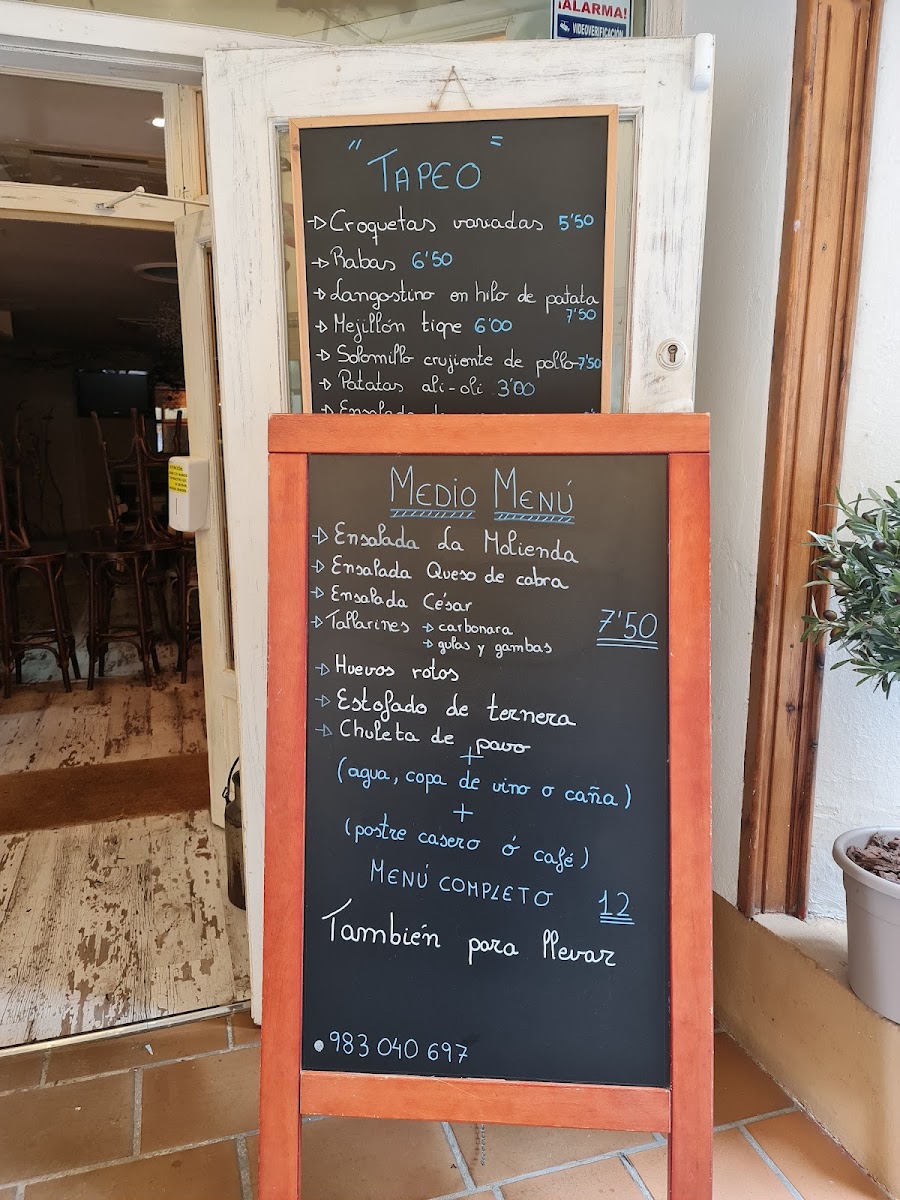 ¡ALARMA!
VIDEOVERIFICACIÓN
"TAPEO"
Croquetas variadas 5'50
Rabas 6'50
Langostino en hilo de patata
7'50
Mejillón tigre 6'00
Solomillo crujiente de pollo 7'50
Patatas ali-oli 3'00
Ensalada
MEDIO MENÚ
Ensalada La Molienda
Ensalada Queso de cabra
Ensalada César
Tallarines → carbonara
→ gulas y gambas
7'50
Huevos rotos
Estofado de ternera
Chuleta de pavo
+
(agua, copa de vino o caña)
+
(postre casero ó café)
MENÚ COMPLETO 12
También para llevar
983 040 697